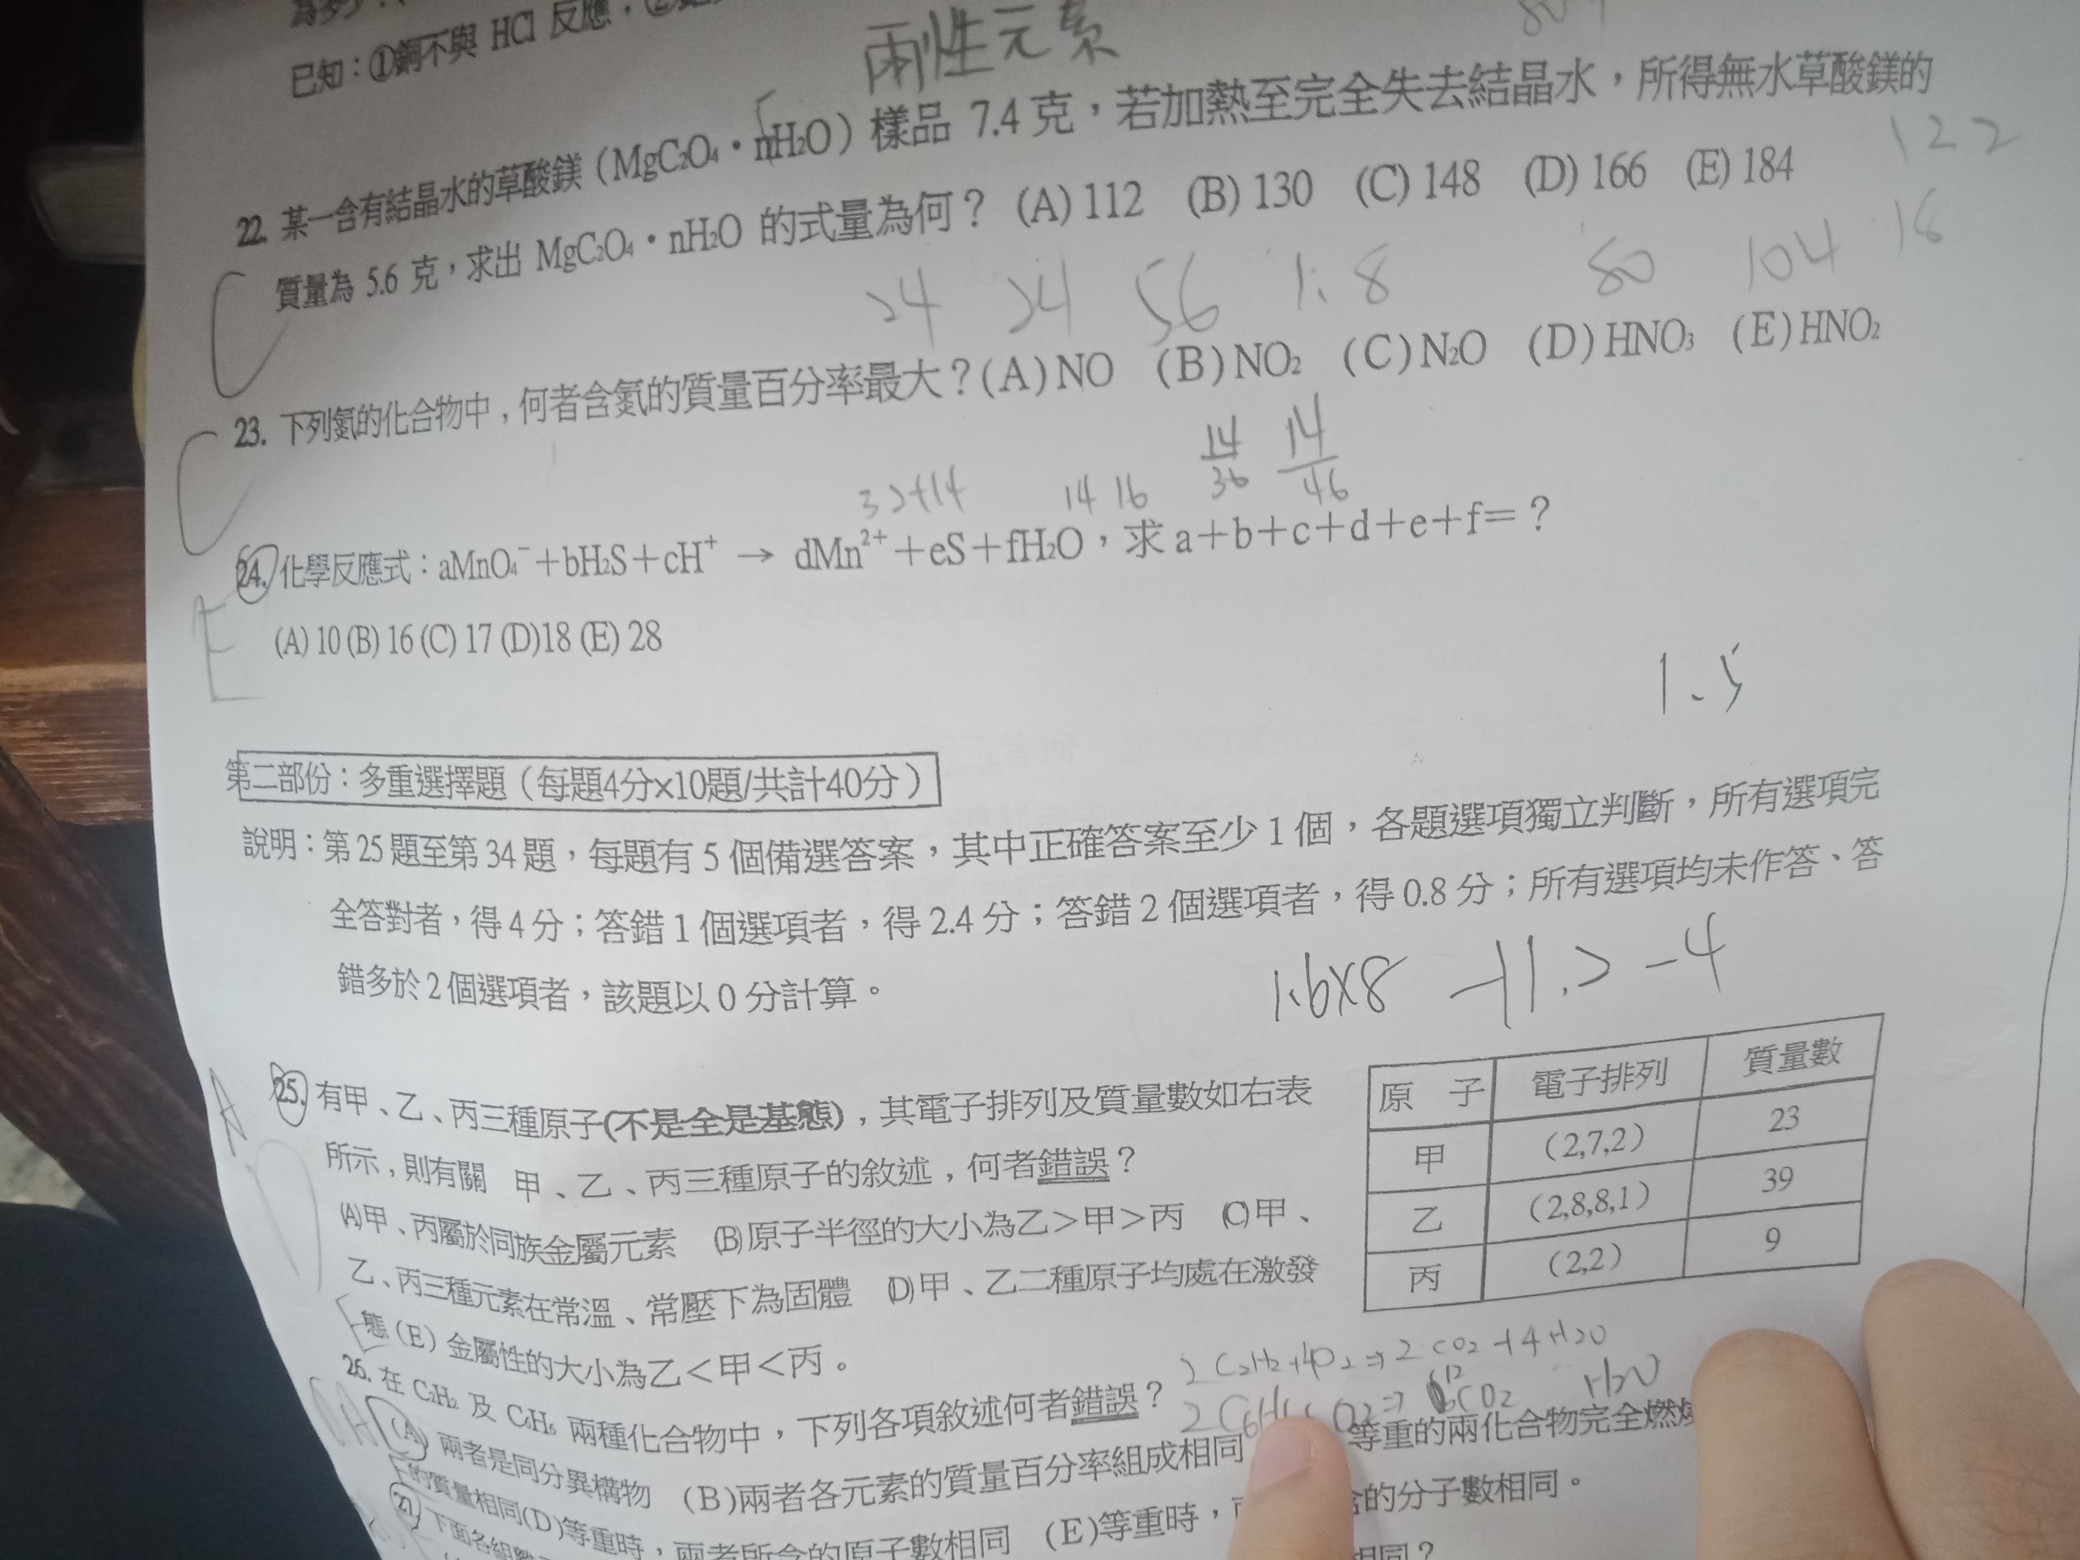 已知：①銅不與 HCl 反應，②
兩性元素
22. 某一含有結晶水的草酸鎂（MgC₂O₄・nH₂O）樣品 7.4 克，若加熱至完全失去結晶水，所得無水草酸鎂的
質量為 5.6 克，求出 MgC₂O₄・nH₂O 的式量為何？ (A) 112 (B) 130 (C) 148 (D) 166 (E) 184
122
C
24 24 56 1.8 80 104 18
23. 下列氮的化合物中，何者含氮的質量百分率最大？(A) NO (B) NO₂ (C) N₂O (D) HNO₃ (E) HNO₂
C
32+14 14 16 14/36 14/46
24. 化學反應式：aMnO₄⁻＋bH₂S＋cH⁺ → dMn²⁺＋eS＋fH₂O，求 a＋b＋c＋d＋e＋f＝？
E
(A) 10 (B) 16 (C) 17 (D)18 (E) 28
1.5
第二部份：多重選擇題（每題4分×10題/共計40分）
說明：第 25 題至第 34 題，每題有 5 個備選答案，其中正確答案至少 1 個，各題選項獨立判斷，所有選項完
全答對者，得 4 分；答錯 1 個選項者，得 2.4 分；答錯 2 個選項者，得 0.8 分；所有選項均未作答、答
錯多於 2 個選項者，該題以 0 分計算。
1.6×8
A D
25. 有甲、乙、丙三種原子(不是全是基態)，其電子排列及質量數如右表
所示，則有關 甲、乙、丙三種原子的敘述，何者錯誤？
(A)甲、丙屬於同族金屬元素 (B)原子半徑的大小為乙＞甲＞丙 (C)甲、
乙、丙三種元素在常溫、常壓下為固體 (D)甲、乙二種原子均處在激發
態 (E) 金屬性的大小為乙＜甲＜丙。
原 子 電子排列 質量數
甲 (2,7,2) 23
乙 (2,8,8,1) 39
丙 (2,2) 9
26. 在 C₂H₂ 及 C₆H₆ 兩種化合物中，下列各項敘述何者錯誤？
(A) 兩者是同分異構物 (B)兩者各元素的質量百分率組成相同 等重的兩化合物完全燃燒
的質量相同(D)等重時，兩者所含的原子數相同 (E)等重時， 的分子數相同。
27. 下面各組
相同？